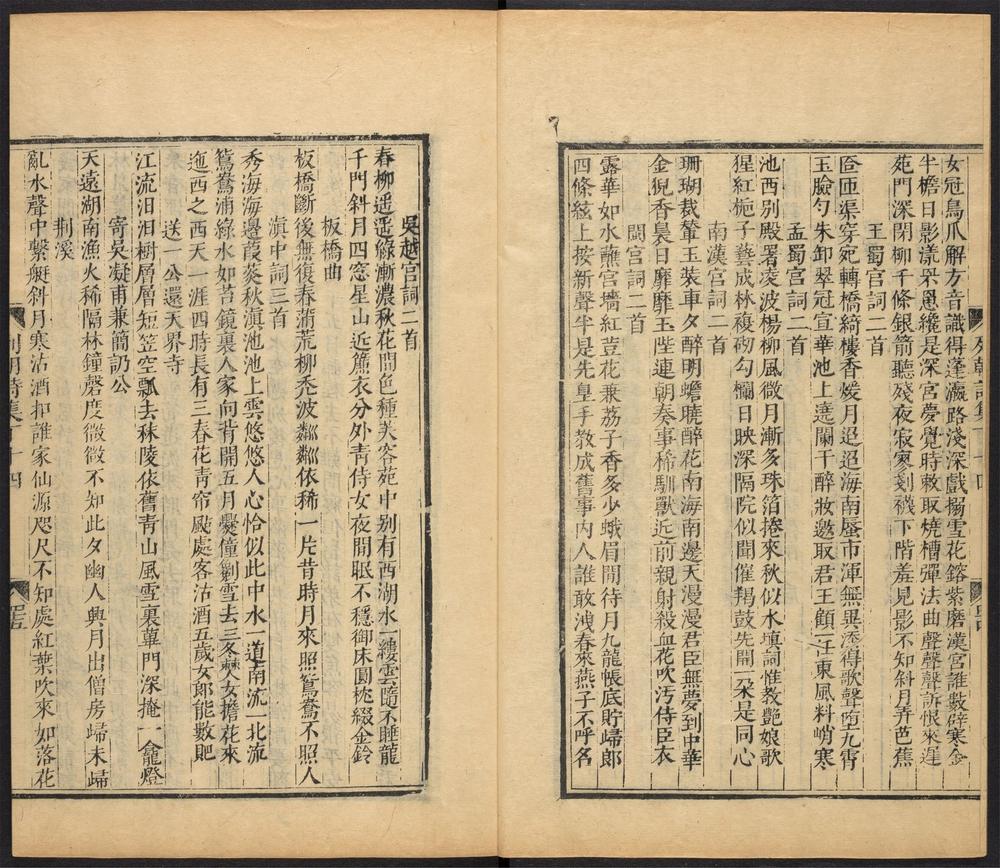 女冠鳥爪解方音識得蓬瀛路淺深戲搦雪花鎔紫磨漢宮誰數辟寒金
半檐日影漾罘罳纔是深宮夢覺時敕取燒槽彈法曲聲聲聲訴恨來遲
苑門深閉柳千條銀箭聽殘夜寂寥刬襪下階羞見影不知斜月弄芭蕉
王蜀宮詞二首
匼匝渠穿宛轉橋綺樓香煖月迢迢海南蜃市渾無異添得歌聲墮九霄
玉臉勻朱卸翠冠宣華池上凭闌干醉妝邀取君王顧一汪東風料峭寒
孟蜀宮詞二首
池西別殿署凌波楊柳風微月漸多珠箔捲來秋似水填詞惟教艷娘歌
猩紅梔子藝成林複砌勾欄日映深隔院似聞催羯鼓先開一朶是同心
南漢宮詞二首
珊瑚裁輦玉裝車夕醉明蟾曉醉花南海南邊天漫漫君臣無夢到中華
金猊香裊日靡靡玉陛運朝奏事稀馴獸近前親射殺血花吹汚侍臣衣
閩宮詞二首
露華如水蘸宮墻紅荳花兼荔子香多少蛾眉閒待月九龍帳底貯歸郎
四條絃上按新聲半是先皇手教成舊事內人誰敢洩春來燕子不呼名
列朝詩集丁十四
吳越宮詞二首
春柳遥遥綠漸濃秋花間色種芙容苑中别有西湖水一縷雲隨不睡龍
千門斜月四窓星山近簾衣分外青侍女夜闌眠不穩御床圓枕綴金鈴
板橋曲
板橋斷後無復春蒲荒柳禿波粼粼依稀一片昔時月來照鴛鴦不照人
滇中詞三首
秀海海邊葭菼秋滇池池上雲悠悠人心恰似此中水一道南流一北流
鴛鴦浦綠水如苔鏡裏人家向背開五月㸑僮劚雪去三冬僰女擔花來
迤西之西天一涯四時長有三春花青帘颭處客沽酒五歲女郎能數𧴩
送一公還天界寺
江流汨汨樹層層短笠空瓢去秣陵依舊青山風雪裏蓽門深掩一龕燈
寄吳凝甫兼簡訒公
天遠湖南漁火稀隔林鐘磬度微微不知此夕幽人興月出僧房歸未歸
荆溪
亂水聲中繫艇斜月寒沽酒扣誰家仙源咫尺不知處紅葉吹來如落花
列朝詩集丁十四